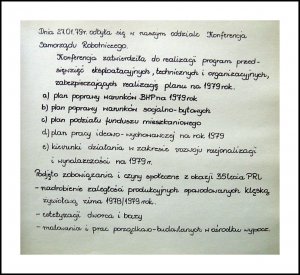 Dnia 27.01.79r. odbyła się w naszym oddziale Konferencja
Samorządu Robotniczego.
Konferencja zatwierdziła do realizacji program przed-
sięwzięć eksploatacyjnych, technicznych i organizacyjnych,
zabezpieczających realizację planu na 1979 rok.
a) plan poprawy warunków BHP na 1979 rok
b) plan poprawy warunków socjalno-bytowych
c) plan podziału funduszu mieszkaniowego
d) plan pracy ideowo-wychowawczej na rok 1979
e) kierunki działania w zakresie rozwoju racjonalizacji
i wynalazczości na 1979 r.
Podjęto zobowiązania i czyny społeczne z okazji 35lecia PRL
- nadrobienie zaległości produkcyjnych spowodowanych klęską
żywiołową zima 1978/1979 rok.
- estetyzacji dworca i bazy
- malowania i prac porządkowo-budowlanych w ośrodku wypocz.